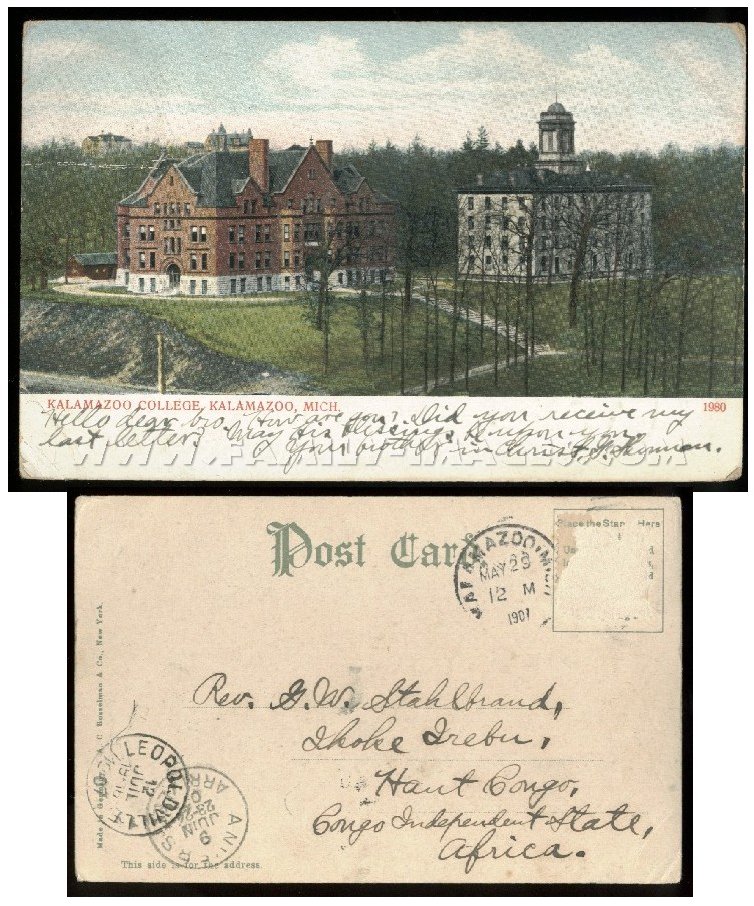 KALAMAZOO COLLEGE, KALAMAZOO, MICH.
1980
Hello dear bro. How are you? Did you receive my
last letter? May His blessing be upon you
Your brother in Christ,
WWW.FAMILY-IMAGES.COM
Post Card
KALAMAZOO, MICH.
MAY 29
12 M
1907
Place the Stamp Here
Rev. G. W. Stahlbrand,
Ikoke Irebu,
Haut Congo,
Congo Independent State,
Africa.
Made in Germany. A. C. Bosselman & Co., New York.
LEOPOLDVILLE
12
JUIL
ANVERS
ARR
9
JUIN
This side is for the address.